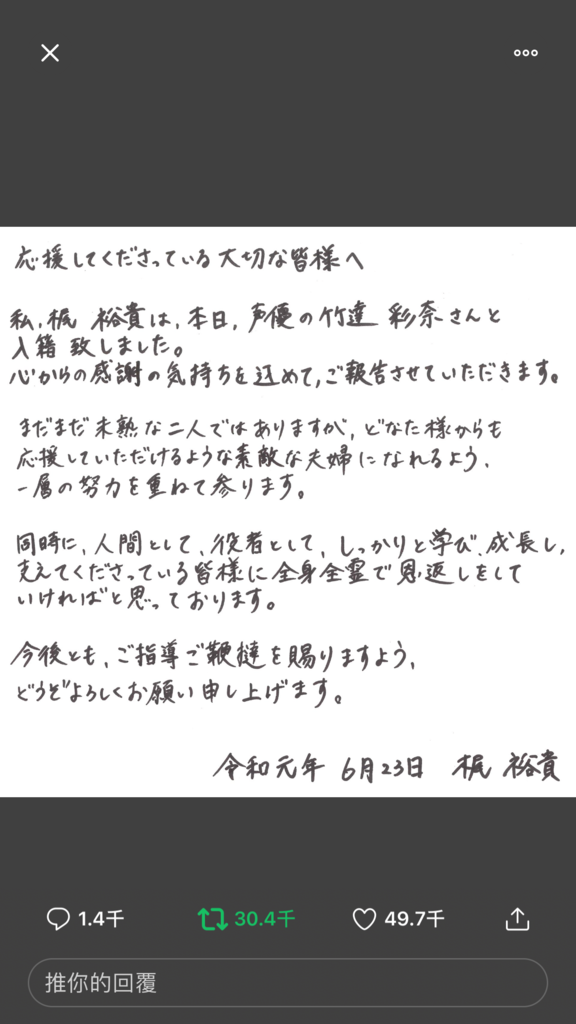 応援してくださっている大切な皆様へ
私、梶 裕貴は、本日、声優の竹達 彩奈さんと
入籍致しました。
心からの感謝の気持ちを込めて、ご報告させていただきます。
まだまだ未熟な二人ではありますが、どなた様からも
応援していただけるような素敵な夫婦になれるよう、
一層の努力を重ねて参ります。
同時に、人間として、役者として、しっかりと学び、成長し、
支えてくださっている皆様に全身全霊で恩返しをして
いければと思っております。
今後とも、ご指導ご鞭撻を賜りますよう、
どうぞよろしくお願い申し上げます。
令和元年 6月23日 梶 裕貴
1.4千 30.4千 49.7千
推你的回覆